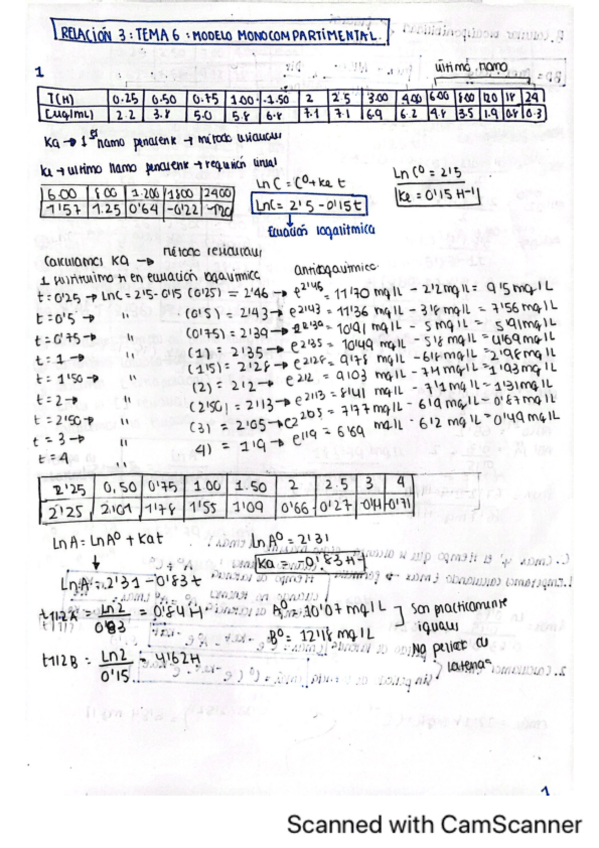 RELACIÓN 3: TEMA 6: MODELO MONOCOMPARTIMENTAL.
1
último tramo
T(H) 0.25 0.50 0.75 1.00 1.50 2 2'5 3.00 4.00 6.00 8.00 120 18 24
C(ug/mL) 2.2 3.8 5.0 5.8 6.8 7.1 7.1 6.9 6.2 4.8 3.5 1.9 0.8 0.3
Ka → 1er tramo pendiente → método residuales
Ke → ultimo tramo pendiente → regresión lineal
6.00 8.00 1.200 1800 2400
1'57 1.25 0'64 -0'22
LnC = C⁰ + ke t
LnC = 2'5 - 0'15t
Ecuación logarítmica
Ln C⁰ = 2'5
Ke = 0'15 H⁻¹
Calculamos Ka → método residuales
1 sustituimos t en ecuación logarítmica
antilogarítmico
t = 0'25 → LnC = 2'5 - 0'15 (0'25) = 2'46 → e^2'46 = 11'70 mg/L - 2'2 mg/L = 9'5 mg/L
t = 0'5 → " (0'5) = 2'43 → e^2'43 = 11'36 mg/L - 3'8 mg/L = 7'56 mg/L
t = 0'75 → " (0'75) = 2'39 → e^2'39 = 10'91 mg/L - 5 mg/L = 5'91 mg/L
t = 1 → " (1) = 2'35 → e^2'35 = 10'49 mg/L - 5'8 mg/L = 4'69 mg/L
t = 1'50 → " (1'5) = 2'28 → e^2'28 = 9'78 mg/L - 6'8 mg/L = 2'98 mg/L
t = 2 → " (2) = 2'2 → e^2'2 = 9'03 mg/L - 7'1 mg/L = 1'93 mg/L
t = 2'50 → " (2'50) = 2'13 → e^2'13 = 8'41 mg/L - 7'1 mg/L = 1'31 mg/L
t = 3 → " (3) = 2'05 → e^2'05 = 7'77 mg/L - 6'9 mg/L = 0'87 mg/L
t = 4 " 4) = 1'9 → e^1'9 = 6'69 mg/L - 6'2 mg/L = 0'49 mg/L
2'25 0,50 0'75 1.00 1.50 2 2.5 3 4
2'25 2.01 1'78 1'55 1'09 0'66 0'27 -0'14 -0'71
LnA = LnA⁰ + Kat
LnA⁰ = 2'31
Ka = -0'83 H⁻¹
LnA = 2'31 - 0'83 t
t1/2 A = Ln2 / 0'83 = 0'84 H
A⁰ = 10'07 mg/L
B⁰ = 12'18 mg/L
Son practicamente iguales
No periodo de latencia
t1/2 B = Ln2 / 0'15 = 4'62 H
1
Scanned with CamScanner